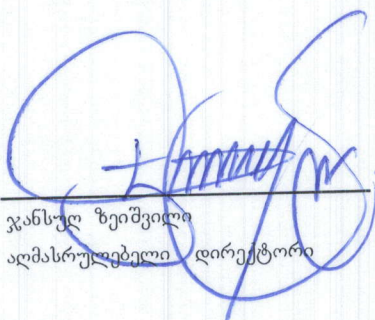 ჯანსუღ ზეიშვილი
აღმასრულებელი დირექტორი